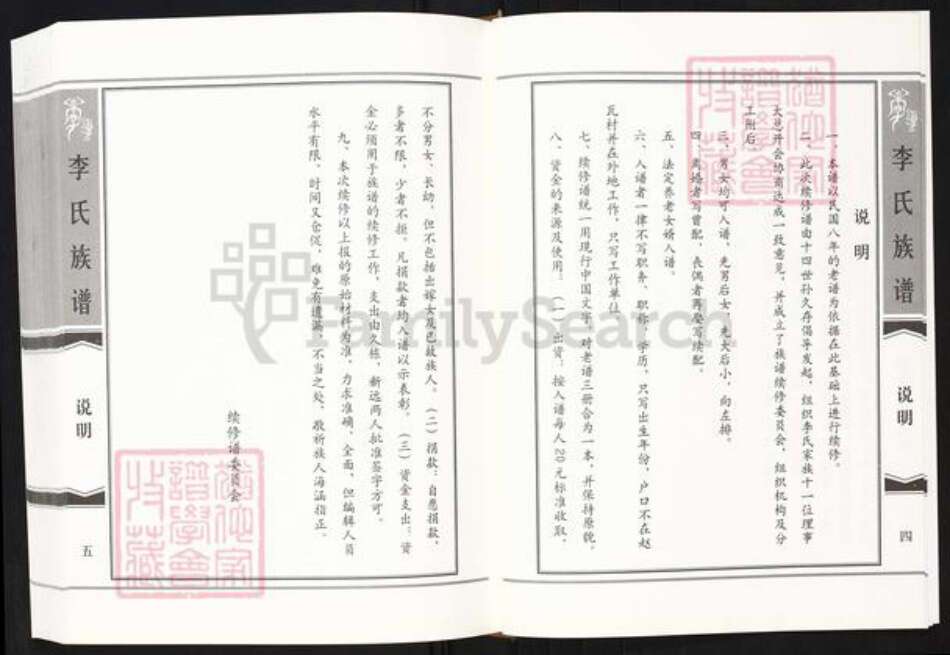 李氏族谱
说明
四
说明
一、本谱以民国八年的老谱为依据在此基础上进行续修。
二、此次续修谱由十四世孙久存倡导发起，组织李氏家族十一位理事
大总开会协商达成一致意见，并成立了族谱续修委员会，组织机构及分
工附后。
三、男女均可入谱，先男后女，先大后小，向左排。
四、离婚者写曾配，丧偶者再娶写续配。
五、法定养老女婿入谱。
六、入谱者一律不写职务、职称、学历，只写出生年份，户口不在赵
瓦村并在外地工作，只写工作单位。
七、续修谱统一用现行中国文字，对老谱三册合为一本，并保持原貌。
八、资金的来源及使用：（一）出资：按入谱每人20元标准收取，
不分男女、长幼，但不包括出嫁女及已故族人。（二）捐款：自愿捐款，
多者不限，少者不拒。凡捐款者均入谱以示表彰。（三）资金支出：资
金必须用于族谱的续修工作，支出由久栋、新远两人批准签字方可。
九、本次续修以上报的原始材料为准，力求准确、全面，但编辑人员
水平有限，时间又仓促，难免有遗漏、不当之处，敬祈族人海涵指正。
续修谱委员会
李氏族谱
说明
五
FamilySearch